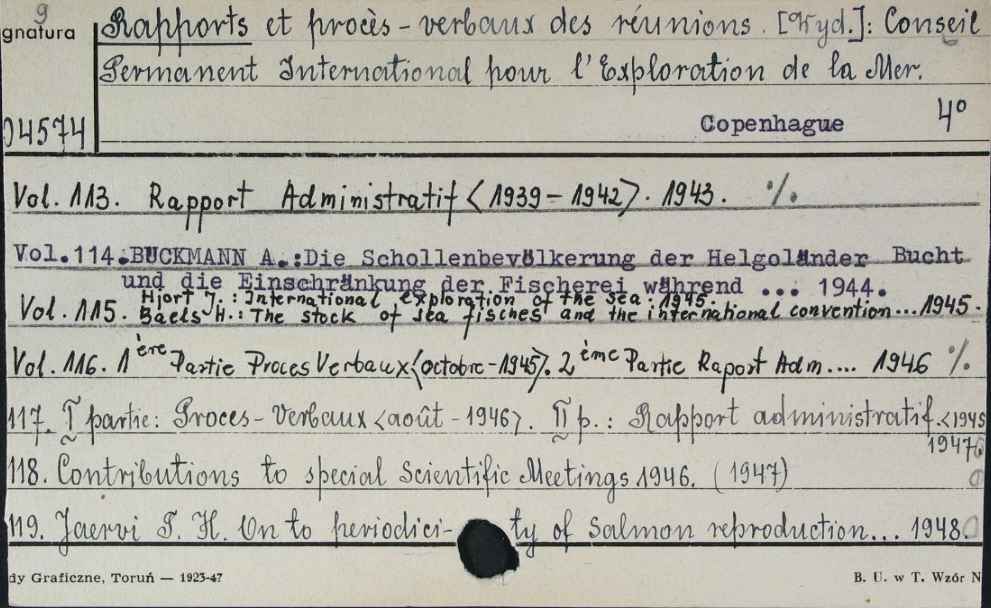 9
gnatura
Rapports et procès-verbaux des réunions. [Wyd.]: Conseil
Permanent International pour l'Exploration de la Mer.
04574
Copenhague 4°
Vol. 113. Rapport Administratif <1939-1942>. 1943. %.
Vol.114.BUCKMANN A.:Die Schollenbevölkerung der Helgoländer Bucht
und die Einschränkung der Fischerei während ... 1944.
Hjort J.: International exploration of the sea. 1945.
Vol. 115. Baels H.: The stock of sea fisches and the international convention...1945.
Vol. 116. 1ère Partie Proces Verbaux <octobre-1945>. 2ème Partie Raport Adm.... 1946 %.
117. I partie: Proces-Verbaux <août-1946>. II p.: Rapport administratif.<1945
1947
118. Contributions to special Scientific Meetings 1946. (1947)
119. Jaervi T. H. On to periodici-ty of Salmon reproduction... 1948.
dy Graficzne, Toruń — 1923-47
B. U. w T. Wzór N